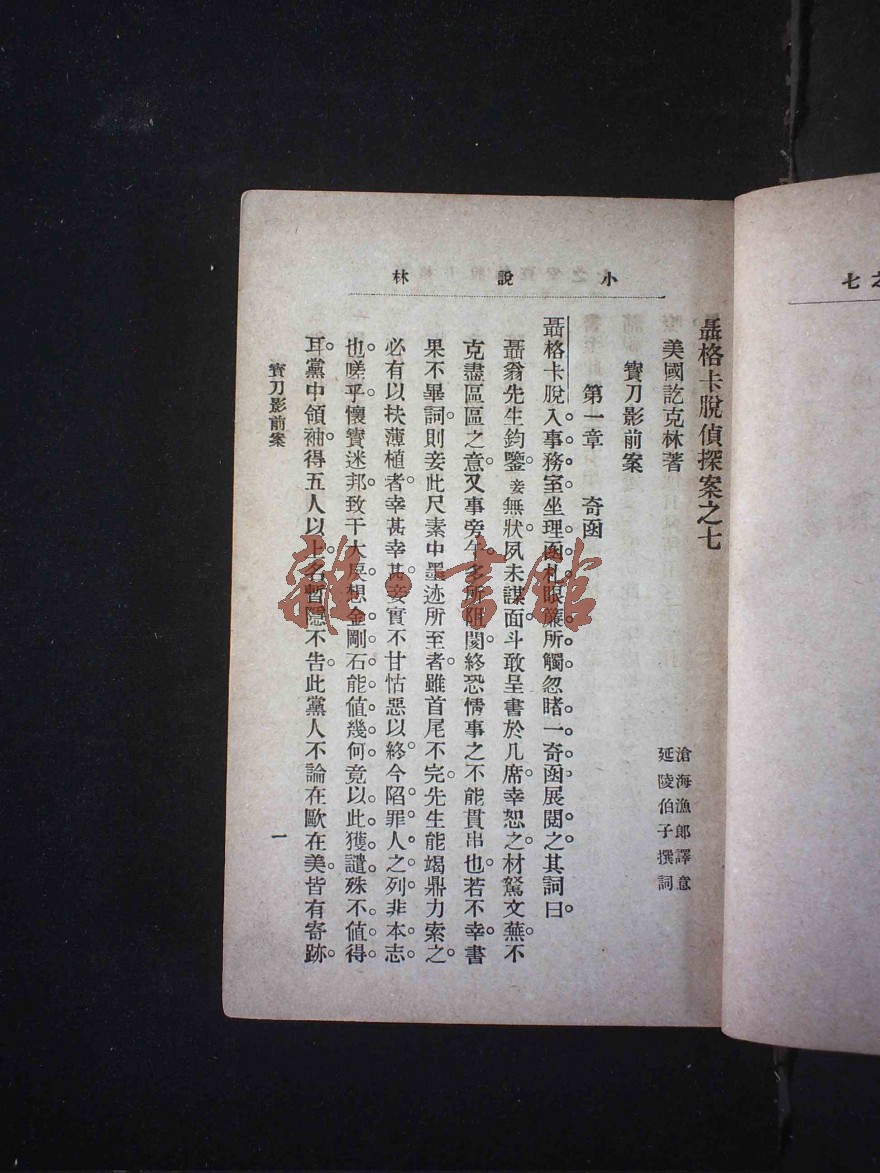 小說林
聶格卡脫偵探案之七
美國訖克林著
滄海漁郎譯意
延陵伯子撰詞
寶刀影前案
第一章　奇函
聶格卡脫入事務室坐理函札眼簾所觸忽睹一奇函展閱之其詞曰。
聶翁先生鈞鑒妾無狀夙未謀面斗敢呈書於几席幸恕之材駑文蕪不
克盡區區之意又事旁午多所阻閡終恐情事之不能貫串也若不幸書
果不畢詞則妾此尺素中墨迹所至者雖首尾不完先生能竭鼎力索之
必有以扶薄植者幸甚幸甚妾實不甘怙惡以終今陷罪人之列非本志
也嗟乎懷寶迷邦致干大戾想金剛石能值幾何竟以此獲譴殊不值得
耳黨中領袖得五人以上名暫隱不告此黨人不論在歐在美皆有寄跡
寶刀影前案
一
之七
雜·書館